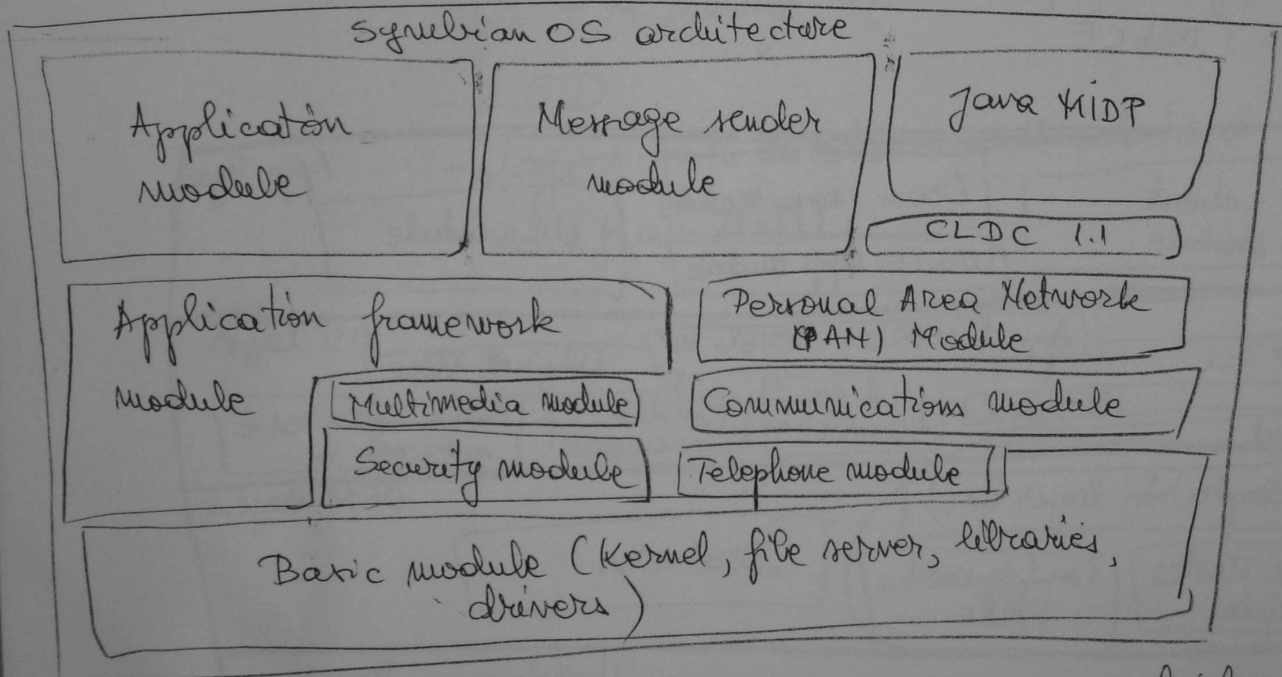 Symbian OS architecture
Application
module
Message sender
module
Java MIDP
CLDC 1.1
Application framework
module
Personal Area Network
(PAN) Module
Multimedia module
Communications module
Security module
Telephone module
Basic module (Kernel, file server, libraries,
drivers)